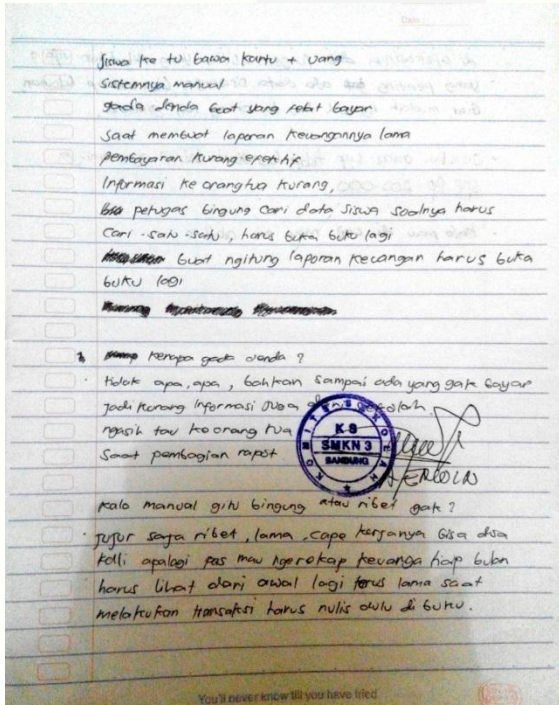 siswa ke tu bawa kartu + uang
sistemnya manual
gada denda buat yang telat bayar
saat membuat laporan keuangannya lama
pembayaran kurang efektif
Informasi ke orangtua kurang,
petugas bingung cari data siswa soalnya harus
cari -satu -satu, harus buka buku lagi
buat ngitung laporan keuangan harus buka
buku lagi
kenapa gada denda ?
tidak apa, apa, bahkan sampai ada yang gak bayar
Jadi kurang informasi juga sekolah
ngasih tau ke orang tua
saat pembagian raport
KOMITE SEKOLAH
KS
SMKN 3
BANDUNG
HERLIN
kalo manual gitu bingung atau ribet gak ?
Jujur saja ribet, lama, cape kerjanya bisa dua
kali apalagi pas mau ngerekap keuanga tiap bulan
harus lihat dari awal lagi terus lama saat
melakukan transaksi harus nulis dulu di buku.
You'll never know till you have tried